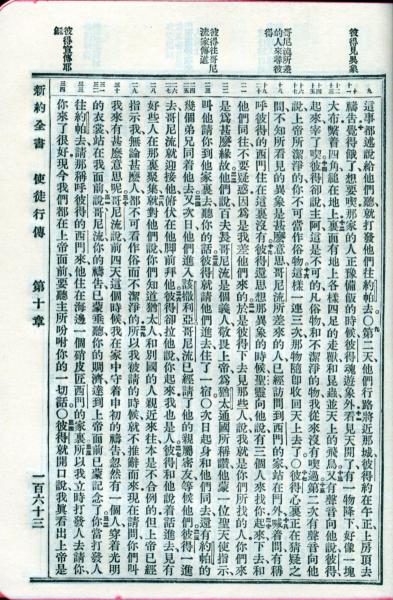 彼得見異象
哥尼流所差的人來尋彼得
彼得往哥尼流家傳道
彼得宣傳耶穌
這事都述說給他們聽就打發他們往約帕去○第二天他們行路將近那城彼得約在午正上房頂去
禱告覺得餓了想要喫那家的人正豫備飯的時候彼得魂遊象外看見天開了有一物降下好像一塊
大布繫着四角縋在地上裏面有地上各樣四足的走獸和昆蟲並天上的飛鳥又有聲音向他說彼得
起來宰了喫彼得卻說主阿這是不可的凡俗物和不潔淨的物我從來沒有喫過第二次有聲音向他
說上帝所潔淨的你不可當作俗物這樣一連三次那物隨即收回天上去了○彼得心裏正在猜疑之
間不知所看見的異象是甚麼意思哥尼流所差來的人已經訪問到西門的家站在門外喊着問有稱
呼彼得的西門住在這裏沒有彼得還思想那異象的時候聖靈向他說有三個人來找你起來下去和
他們同往不要疑惑因爲是我差他們來的於是彼得下去見那些人說我就是你們所找的人你們來
是爲甚麼緣故他們說百夫長哥尼流是個義人敬畏上帝爲猶太通國所稱讚他蒙一位聖天使指示
叫他請你到他家裏去聽你的話彼得就請他們進去住了一宿○次日起身和他們同去還有約帕的
幾個弟兄同着他去又次日他們進入該撒利亞哥尼流已經請了他的親屬密友等候他們彼得一進
去哥尼流就迎接他俯伏在他腳前拜他彼得卻拉他說你起來我也是人彼得和他說着話進去見有
好些人在那裏聚集就對他們說你們知道猶太人和別國的人親近來往本是不合例的但上帝已經
指示我無論甚麼人都不可看作俗而不潔淨的所以我被請的時候就不推辭而來現在請問你們叫
我來有甚麼意思呢哥尼流說前四天這個時候我在家中守着申初的禱告忽然有一個人穿着光明
的衣裳站在我面前說哥尼流你的禱告已蒙垂聽你的賙濟達到上帝面前已蒙記念了你當打發人
往約帕去請那稱呼彼得的西門來他住在海邊一個硝皮匠西門的家裏所以我立時打發人去請你
你來了很好現今我們都在上帝面前要聽主所吩咐你的一切話○彼得就開口說我真看出上帝是
新約全書 使徒行傳 第十章 一百六十三